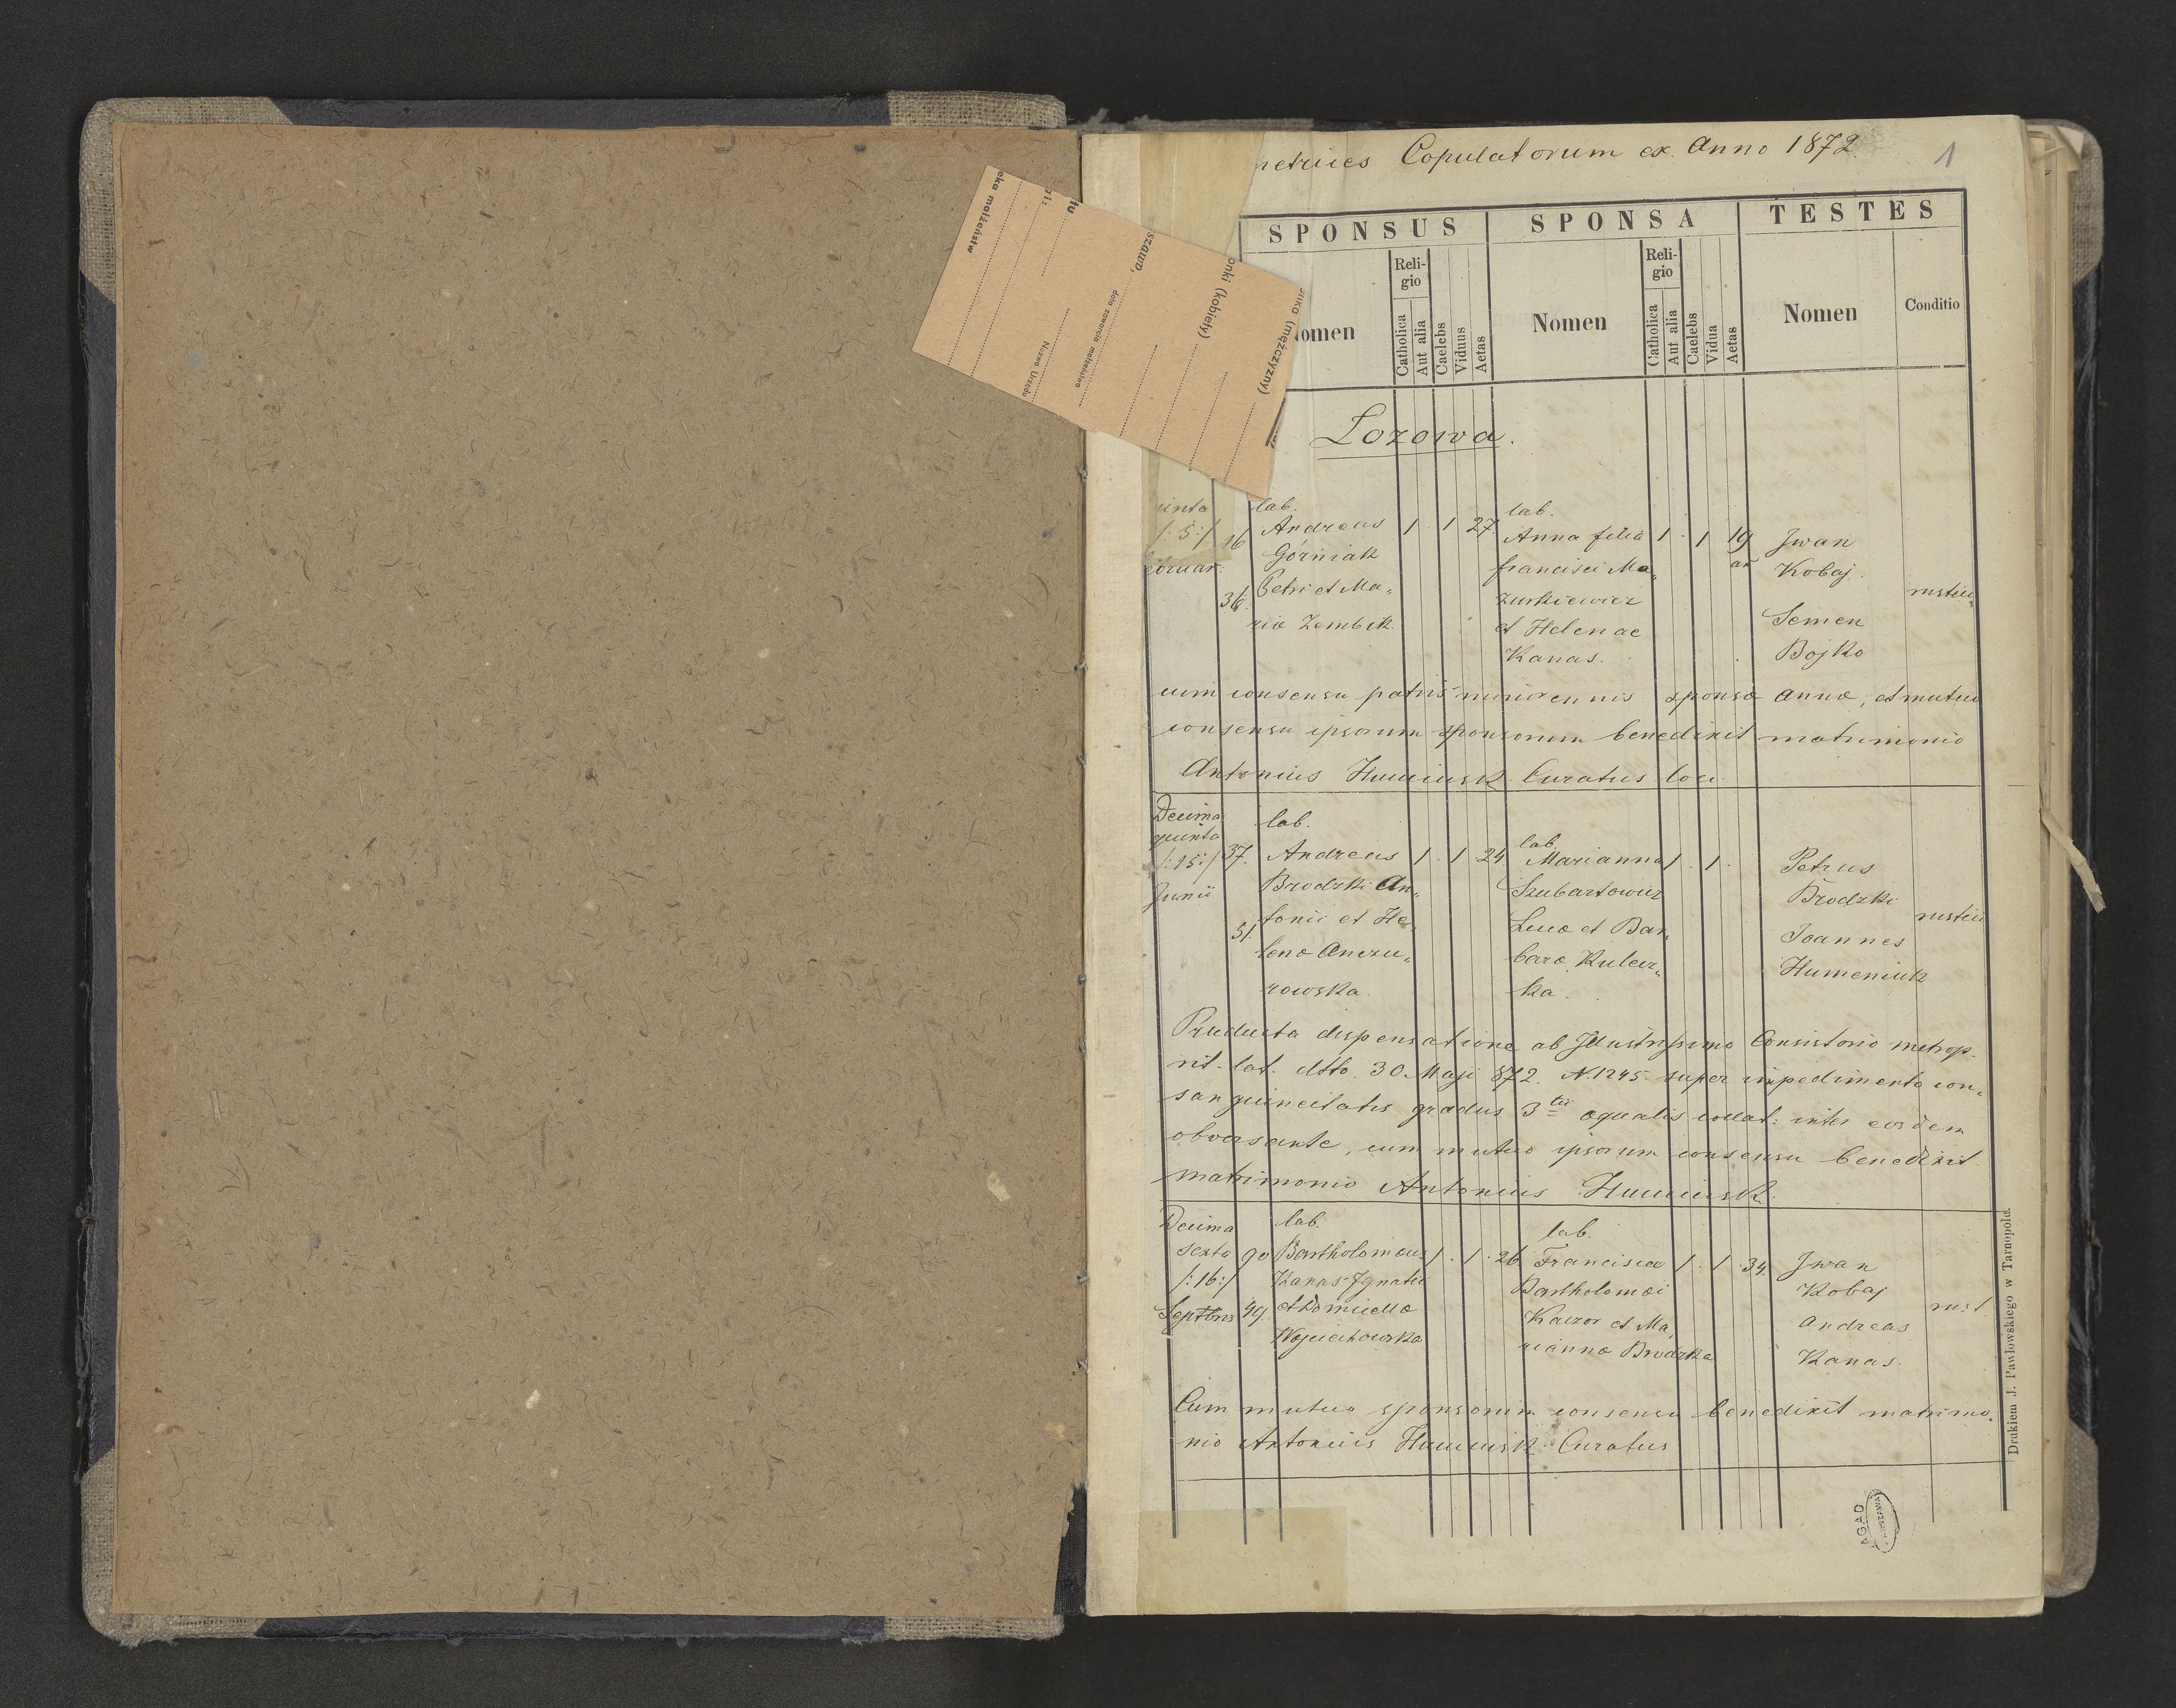 metrices Copulatorum ex Anno 1872
1
SPONSUS
SPONSA
TESTES
Nomen
Religio
Catholica
Aut alia
Caelebs
Viduus
Aetas
Nomen
Religio
Catholica
Aut alia
Caelebs
Vidua
Aetas
Nomen
Conditio
eka małżeństw
szawa,
data zawarcia małżeństwa
Nazwa Urzędu
onki (kobiety)
(mężczyzny)
Lozowa.
inta
/:5:/
16
36.
lab.
Andreas
Górniak
Petri et Ma„
riæ Zembik
1 . 1 27
lab.
Anna filia
francisci Ma„
zurkiewicz
et Helenae
Kanas.
1 . 1 19
an
Iwan
Kobaj.
Semen
Bojko
rustici
cum consensu patris minorennis sponsæ Annæ, et mutuo
consensu ipsorum sponsorum benedixit matrimonio
Antonius Curatus loci
Decima
quinta
/:15:/
Junii
37.
51.
lab.
Andreas
Brodzki An„
tonii et He„
lenæ Anczu„
rowska
1 . 1 24
lab.
Marianna
Szubartowicz
Lucæ et Bar„
baræ Kulcz„
ka.
1 . 1 .
Petrus
Brodzki
Joannes
Humeniuk
rustici
Producta dispensatione ab Illustrissimo Consistorio metrop.
rit. lat. dtto. 30 Maji 872. N. 1245. super impedimento con„
sanguineitatis gradus 3tii æqualis collat: inter eosdem
obversante, cum mutuo ipsorum consensu benedixit
matrimonio Antonius
Decima
sexta
/:16:/
Septbris
90
49.
lab.
Bartholomeus
Kanas Ignatii
et Domicellæ
Wojciechowska
1 . 1 . 26
lab.
Francisca
Bartholomæi
Kaczor et Ma„
riannæ Brodzka
1 . 1 . 34
Iwan
Kobaj
Andreas
Kanas.
rust
Cum mutuo sponsorum consensu benedixit matrimo„
nio Antonius Curatus
Drukiem J. Pawłowskiego w Tarnopolu.
AGAD
WARSZAWA